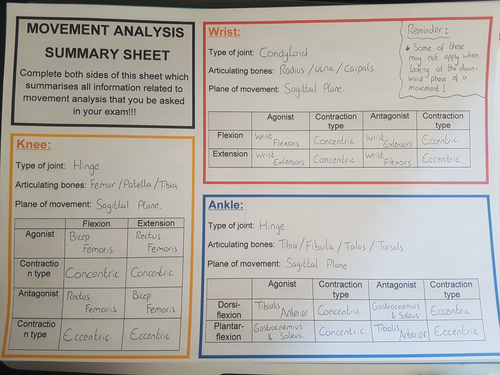 MOVEMENT ANALYSIS
SUMMARY SHEET
Complete both sides of this sheet which
summarises all information related to
movement analysis that you be asked
in your exam!!!
Knee:
Type of joint: Hinge
Articulating bones: Femur / Patella / Tibia
Plane of movement: Sagittal Plane.
Flexion Extension
Agonist Bicep Femoris Rectus Femoris
Contraction type Concentric Concentric
Antagonist Rectus Femoris Bicep Femoris
Contraction type Eccentric Eccentric
Wrist:
Type of joint: Condyloid
Articulating bones: Radius / Ulna / Carpals.
Plane of movement: Sagittal Plane.
Reminder:
Some of these
may not apply when
looking at the down-
ward phase of a
movement!
Agonist Contraction type Antagonist Contraction type
Flexion Wrist Flexors Concentric Wrist Extensors Eccentric
Extension Wrist Extensors Concentric Wrist Flexors Eccentric
Ankle:
Type of joint: Hinge
Articulating bones: Tibia / Fibula / Talus / Tarsals
Plane of movement: Sagittal Plane
Agonist Contraction type Antagonist Contraction type
Dorsi-flexion Tibialis Anterior Concentric Gastrocnemius & Soleus Eccentric
Plantar-flexion Gastrocnemius & Soleus. Concentric. Tibialis Anterior Eccentric